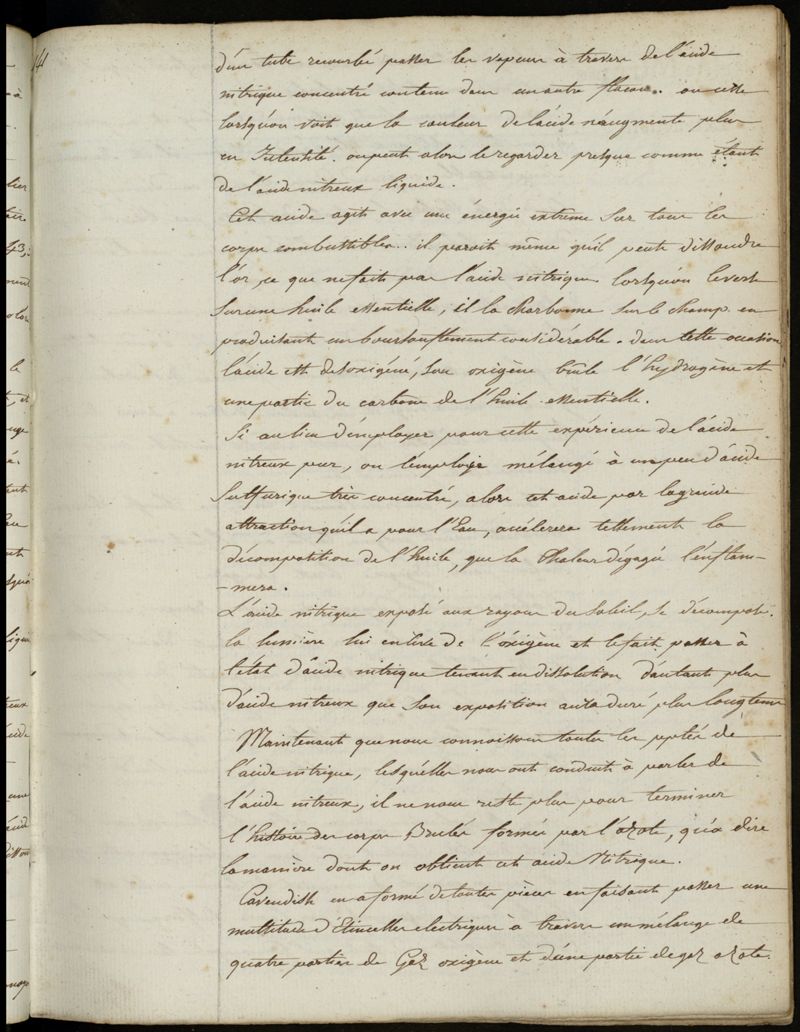 d'un tube recourbé passer les vapeurs à travers de l'acide
nitrique concentré contenu dans un autre flacon. on cesse
lorsqu'on voit que la couleur de l'acide n'augmente plus
en Intensité. on peut alors le regarder presque comme étant
de l'acide nitreux liquide.
Cet acide agit avec une énergie extrême sur tous les
corps combustibles.. il paroit même qu'il peut dissoudre
l'or ce que ne fait pas l'acide nitrique. lorsqu'on le verse
sur une huile essentielle, il la charbonne sur le champ en
produisant un boursouflement considérable. dans cette occasion
l'acide est desoxigéné, son oxigène brûle l'hydrogène et
une partie du carbone de l'huile essentielle.
Si au lieu d'employer pour cette expérience de l'acide
nitreux pur, on l'emploie mélangé à un peu d'acide
Sulfurique très concentré, alors cet acide par la grande
attraction qu'il a pour l'Eau, accélerera tellement la
décomposition de l'huile, que la Chaleur dégagée l'enflam-
-mera.
L'acide nitrique exposé aux rayons du Soleil, se décompose.
la lumière lui enleve de l'oxigène et le fait passer à
l'état d'acide nitrique tenant en dissolution d'autant plus
d'acide nitreux que son exposition aura duré plus longtems
Maintenant que nous connoissons toutes les ppiétés de
l'acide nitrique, lesquelles nous ont conduit à parler de
l'acide nitreux, il ne nous reste plus pour terminer
l'histoire des corps Brulés formés par l'azote, qu'à dire
la manière dont on obtient cet acide Nitrique.
Cavendish en a formé de toutes pièces en faisant passer une
multitude d'Etincelles electriques à travers un mélange de
quatre parties de Gaz oxigène et d'une partie de gaz azote.